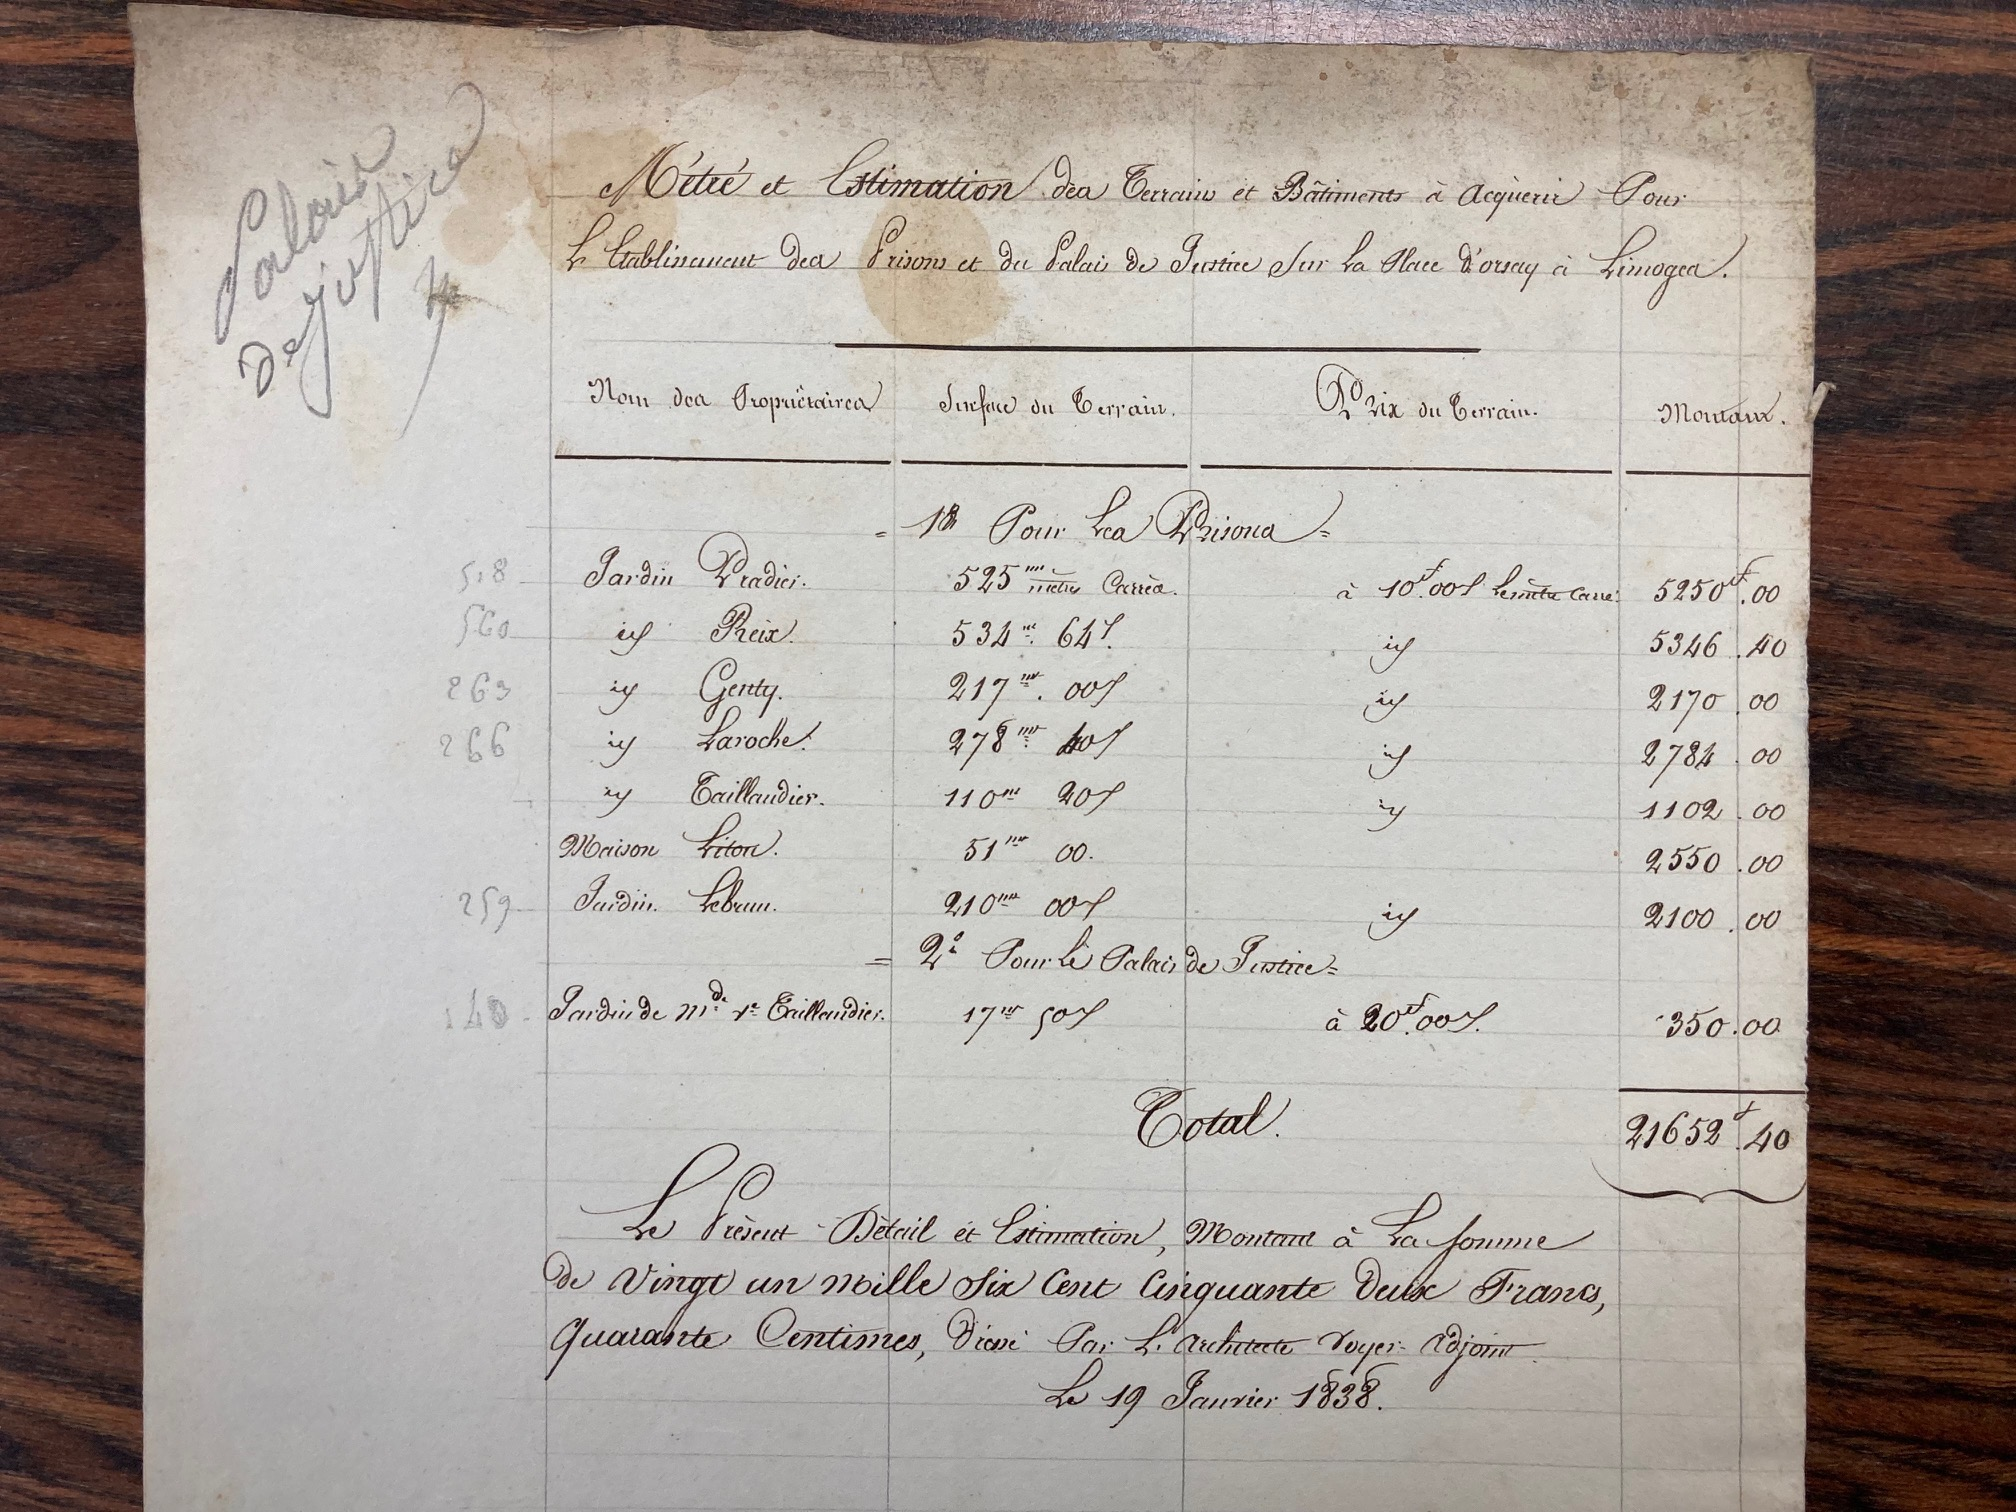 Palais
de justice
Métré et Estimation des Terrains et Bâtiments à Acquérir Pour
L'Etablissement des Prisons et du Palais de Justice Sur La Place d'orsay à Limoges.
Nom des Propriétaires Surface du Terrain. Prix du Terrain. Montant.
= 1º Pour Les Prisons =
518 Jardin Pradier. 525 m mètres Carrés. à 10f.00c Le mètre Carré. 5250f.00
560 id Reix. 534m. 64c. id 5346.40
263 id Genty. 217m. 00c id 2170.00
266 id Laroche. 278m. 40c id 2784.00
id Taillandier. 110m 20c id 1102.00
Maison Liton. 51m 00. 2550.00
259 Jardin. Lebrun. 210m 00c id 2100.00
= 2º Pour Le Palais de Justice =
140 Jardin de Mde Ve Taillandier. 17m 50c à 20f.00c. 350.00
Total. 21652f.40
Le Présent Détail et Estimation, Montant à La Somme
de Vingt un mille Six Cent Cinquante Deux Francs,
Quarante Centimes, Dressé Par L'Architecte Voyer Adjoint
Le 19 Janvier 1838.